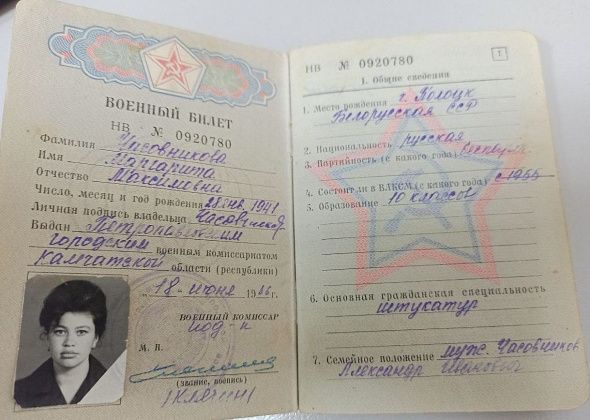 ВОЕННЫЙ БИЛЕТ
НВ № 0920780
Фамилия Часовникова
Имя Маргарита
Отчество Максимовна
Число, месяц и год рождения 28 янв. 1941
Личная подпись владельца
Выдан Петропавловским
городским военным комиссариатом
Камчатской области (республики)
18 июня 1966 г.
ВОЕННЫЙ КОМИССАР
под-к
М. П.
(звание, подпись)
НВ № 0920780
1
1. Общие сведения
1. Место рождения г. Полоцк
Белорусская ССР
2. Национальность русская
3. Партийность (с какого года)
4. Состоит ли в ВЛКСМ (с какого года) с
5. Образование 10 классов
6. Основная гражданская специальность
штукатур
7. Семейное положение муж. Часовников
Александр Иванович